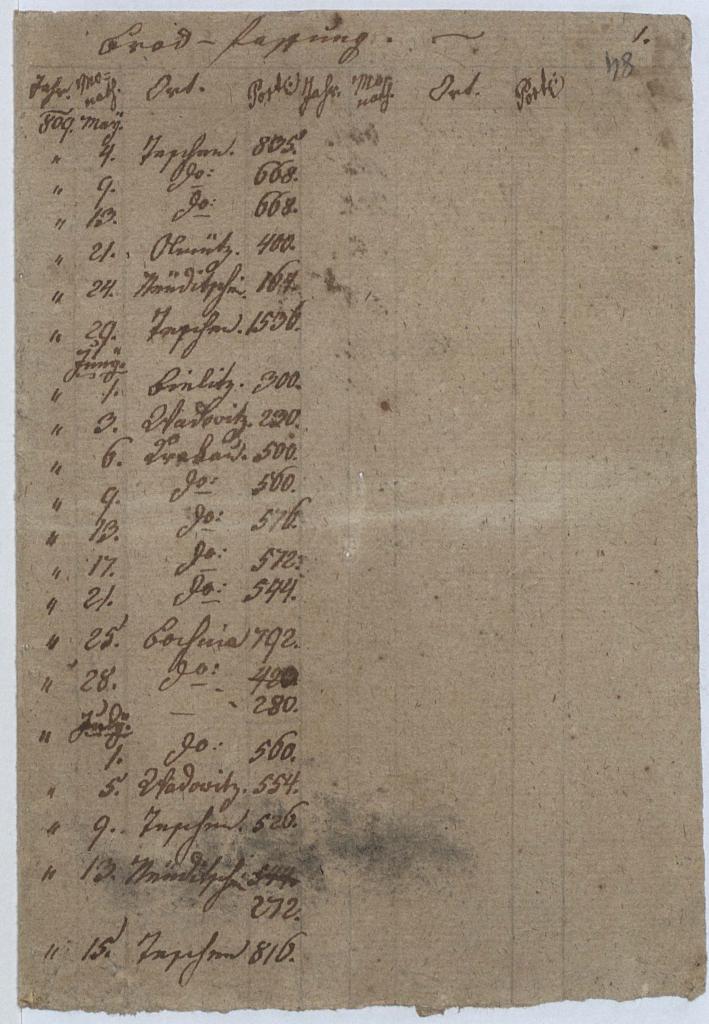 Brod-Fassung. — 1.
48
Jahr. Mo-nath. Ort. Porti: Jahr. Mo-nath. Ort. Porti:
809. May.
" 4. Teschen. 805.
" 9. do: 668.
" 13. do: 668.
" 21. Olmütz. 400.
" 24. Neüditschin. 164.
" 29. Teschen. 1536.
Juny.
" 1. Bielitz. 300.
" 3. Wadowitz. 230.
" 6. Krakau. 500.
" 9. do: 560.
" 13. do: 576.
" 17. do: 572.
" 21. do: 544.
" 25. Bochnia 792.
" 28. do: 420
— " 280.
" July.
1. do: 560.
" 5. Wadowitz. 554.
" 9. Teschen. 526.
" 13. Neüditschin 544.
272.
" 15. Teschen 816.